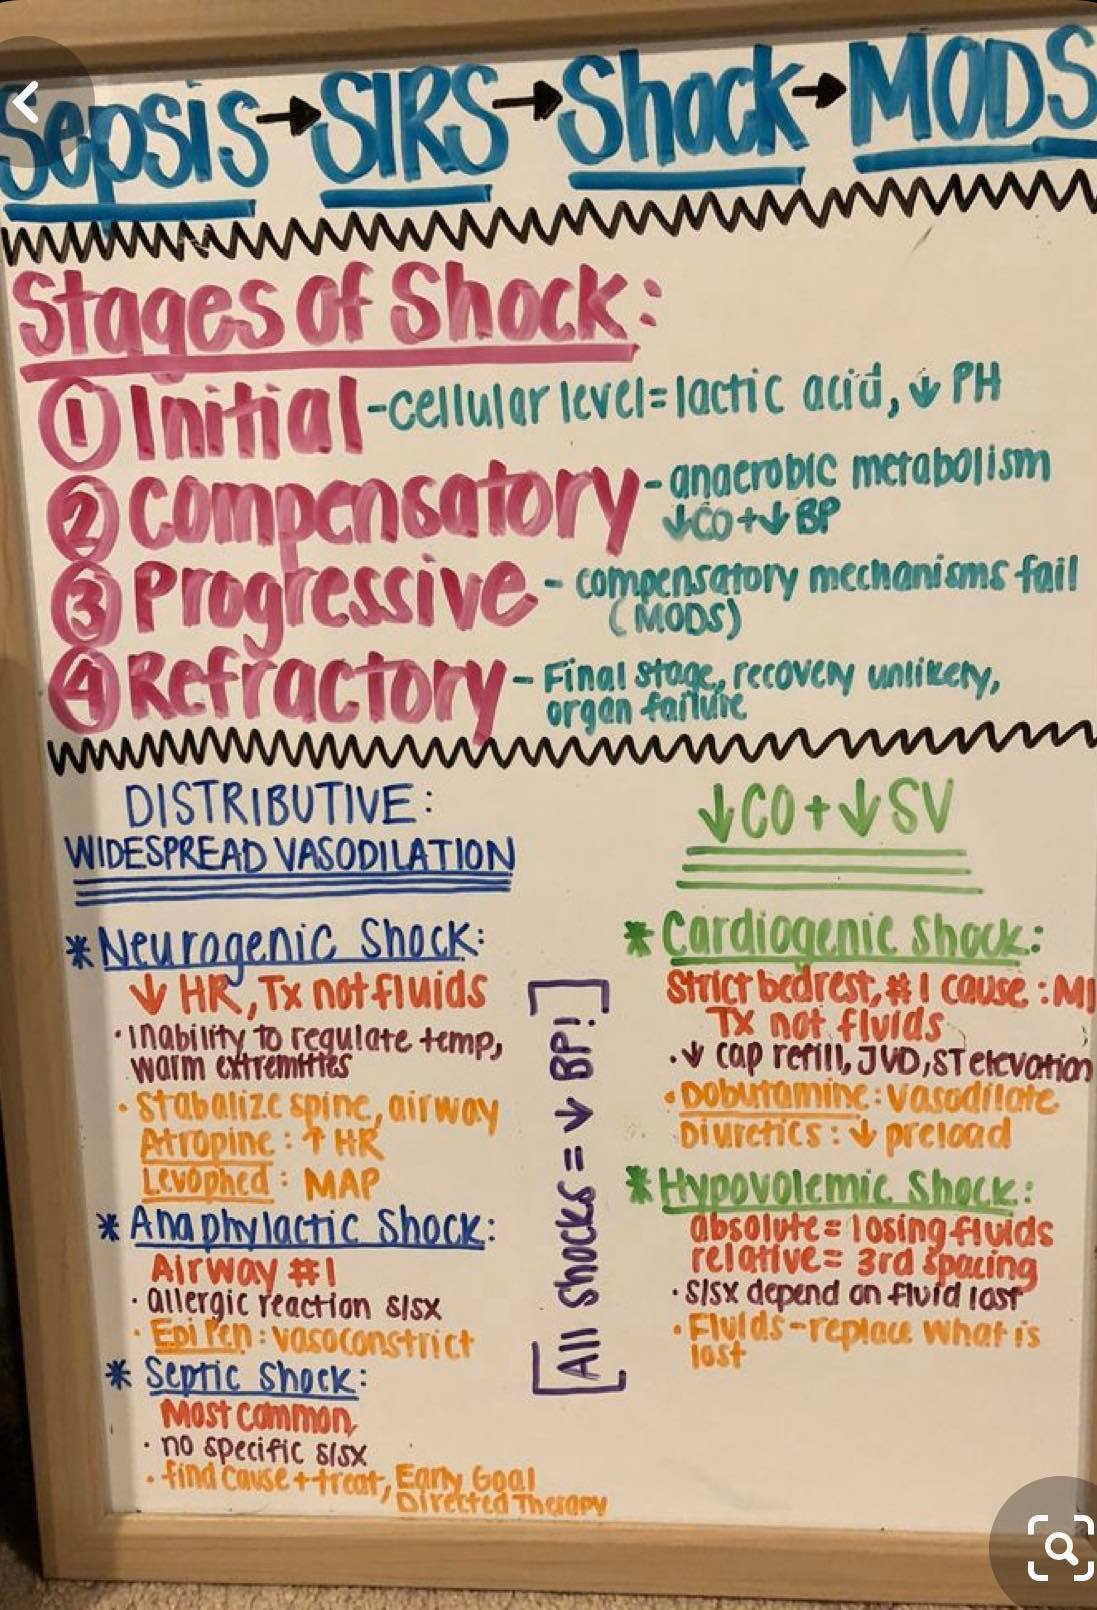 Sepsis→SIRS→Shock→MODS
Stages of Shock:
① Initial -cellular level=lactic acid, ↓ PH
② Compensatory - anaerobic metabolism
↓CO+↓BP
③ Progressive - compensatory mechanisms fail
(MODS)
④ Refractory - Final stage, recovery unlikely,
organ failure
DISTRIBUTIVE:
WIDESPREAD VASODILATION
* Neurogenic Shock:
↓ HR, Tx not fluids
· Inability to regulate temp,
warm extremities
· Stabalize spine, airway
Atropine: ↑ HR
Levophed: MAP
* Anaphylactic Shock:
Airway #1
· allergic reaction s/sx
· Epi Pen: vasoconstrict
* Septic Shock:
Most common,
· no specific s/sx
· find cause + treat, Early Goal
Directed Therapy
[All shocks = ↓ BP!]
↓CO+↓SV
* Cardiogenic Shock:
Strict bedrest, #1 cause: MI
Tx not fluids
· ↓ cap refill, JVD, ST elevation
· Dobutamine: Vasodilate
Diuretics: ↓ preload
* Hypovolemic Shock:
absolute= losing fluids
relative= 3rd spacing
· s/sx depend on fluid lost
· Fluids-replace what is
lost